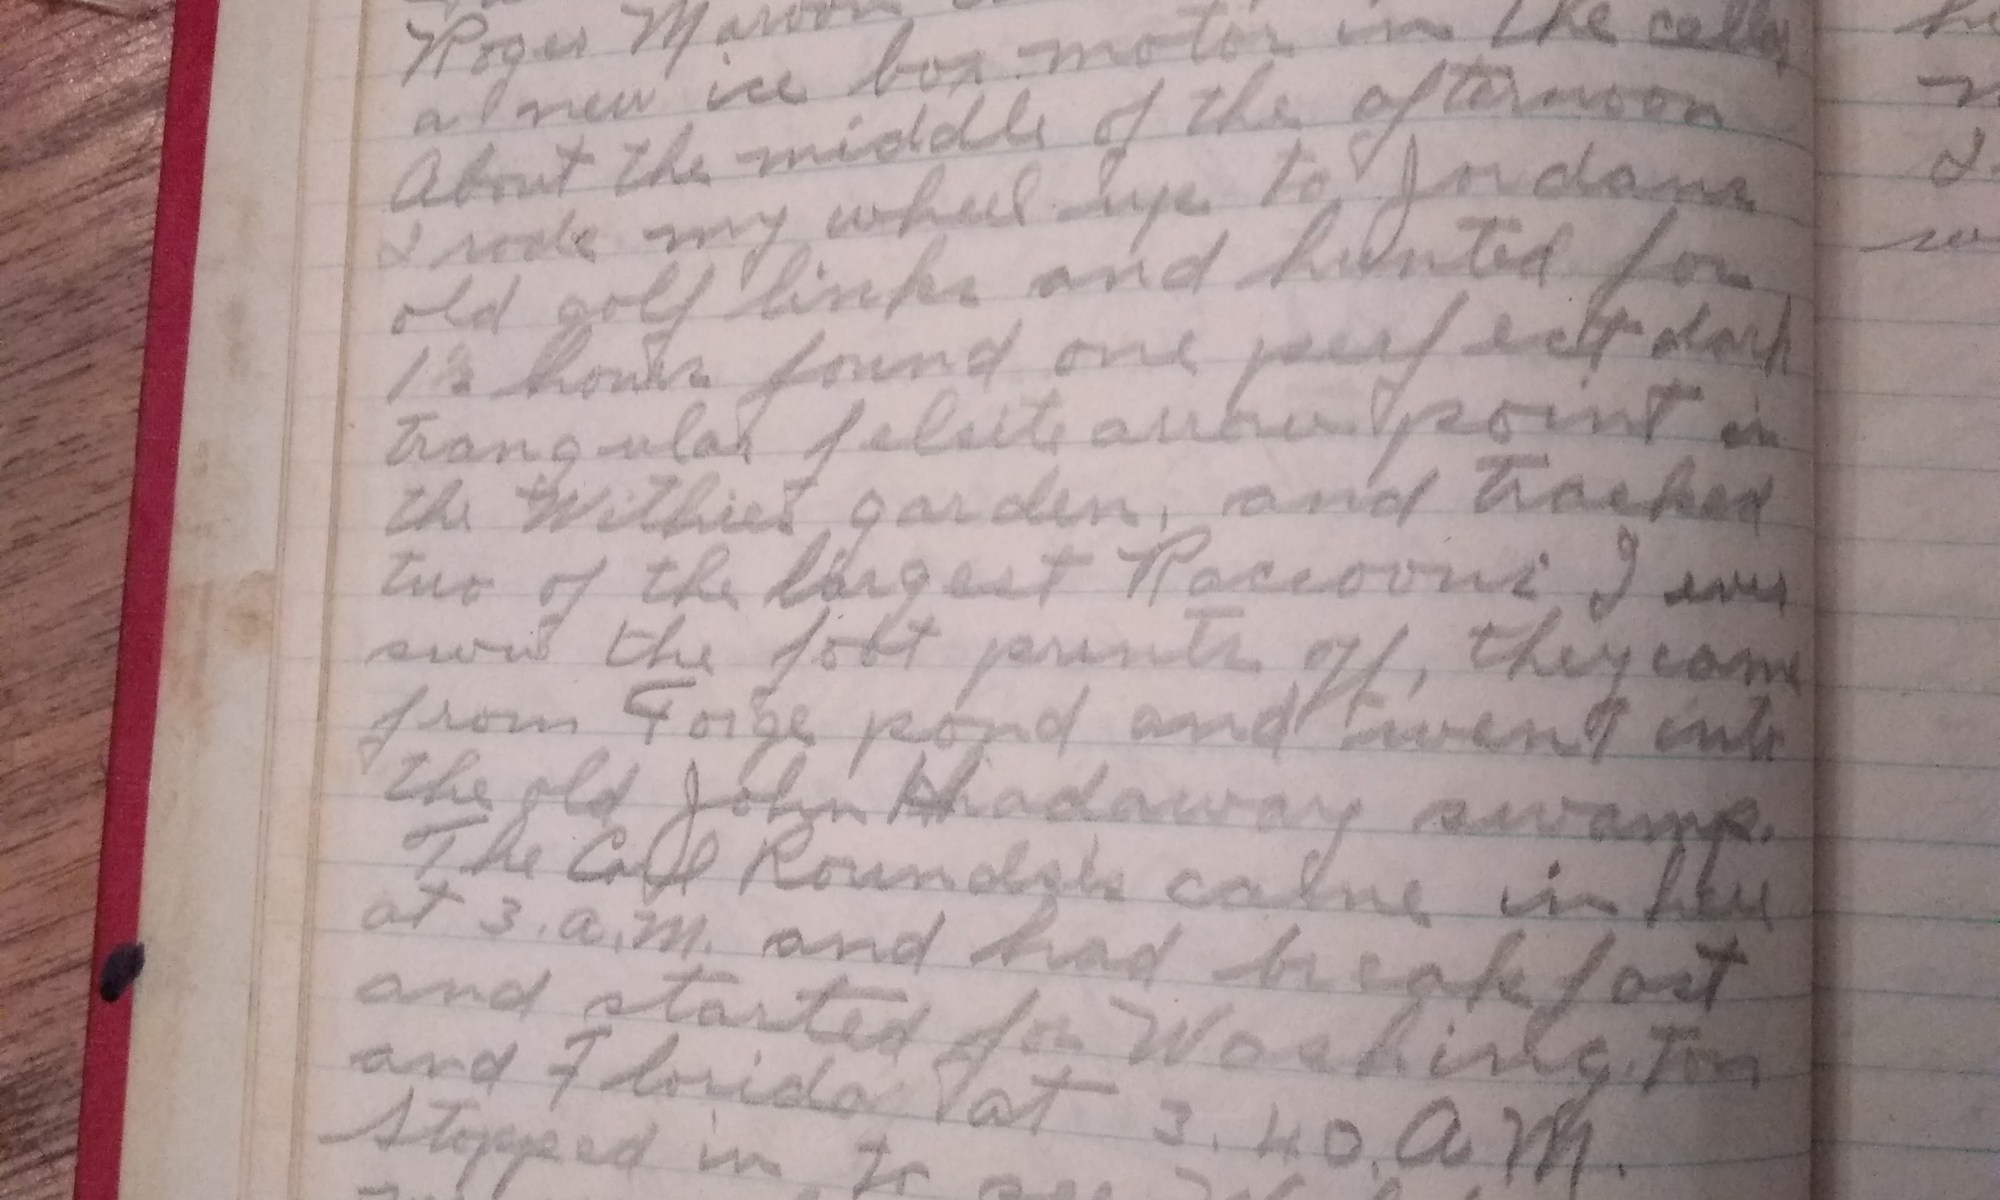 Roger Maroon
a new ice box motor in the celler
About the middle of the afternoon
I rode my wheel up to Jordans
old golf links and hunted for
1½ hours found one perfect dark
trangular felsite arrow point in
the Withies garden, and tracked
two of the largest Raccoons I ever
saw the foot prints of, they came
from Forge pond and went into
the old John Hhadaway swamp.
The Carl Rounds'es came in here
at 3. A.M. and had breakfast
and started for Washington
and Florida at 3.40. A M.
Stopped in to see